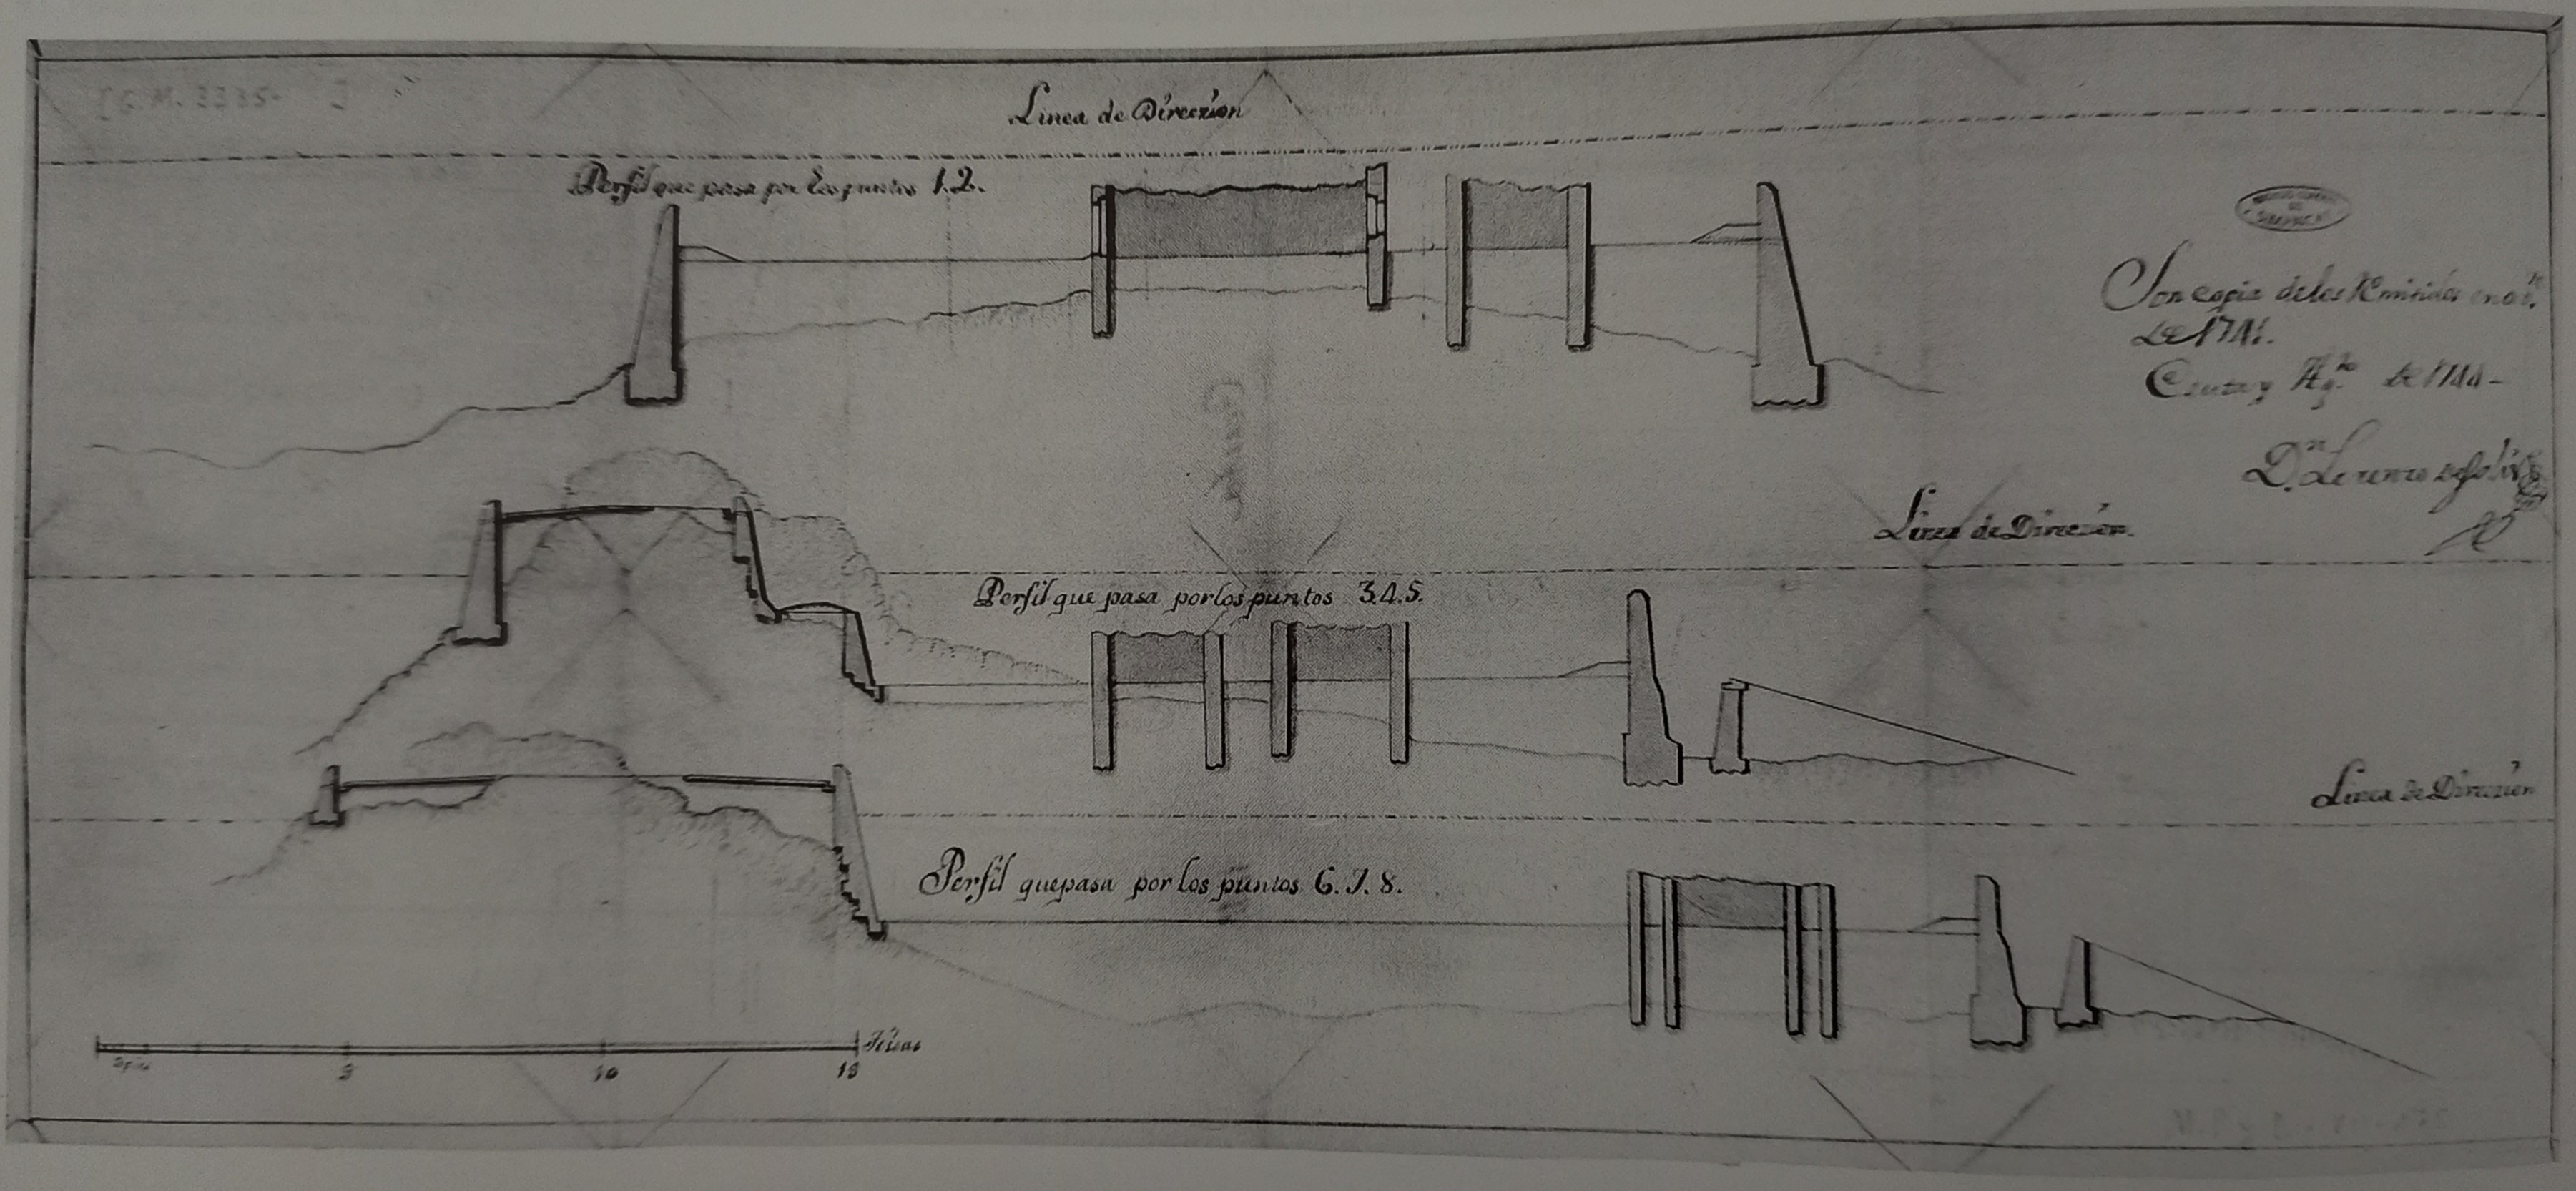 Linea de Direczion
Perfil que pasa por Los puntos 1.2.
Son copia de los Remitidos en
de 1741.
Ceuta y Ag.to de 1744-
D.n Lorenzo de Solis
Linea de Direczion.
Perfil que pasa por los puntos 3.4.5.
Linea de Direczion
Perfil que pasa por los puntos 6.7.8.
Tuesas
5 10 15